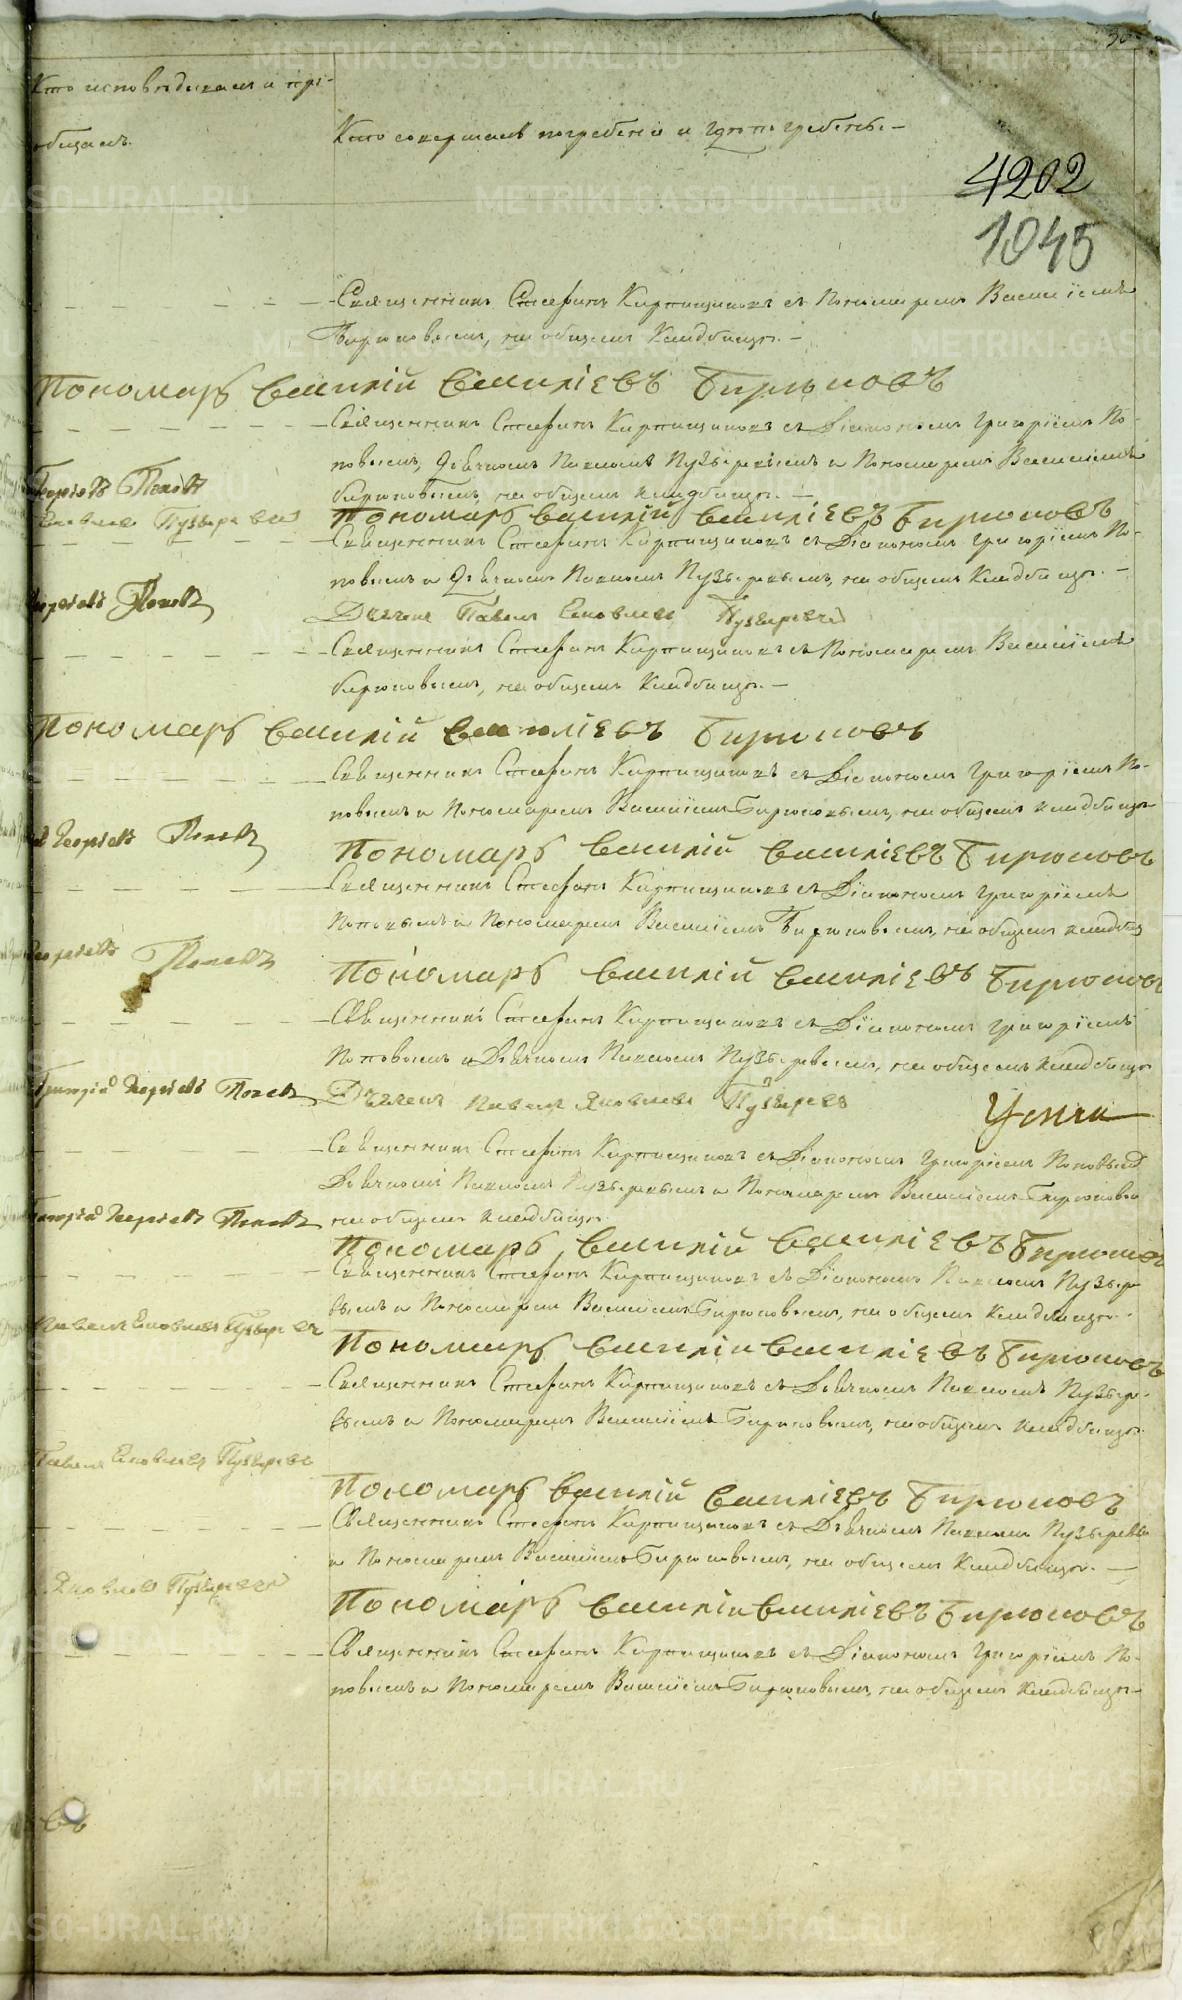 Кто исповѣдывалъ и прі-
общалъ.
Кто совершалъ погребеніе и гдѣ погребены.
4202
1045
Священникъ Стефанъ Кирпищиковъ съ Пономаремъ Василіемъ
Бирюковымъ, на общемъ кладбищѣ.
Пономарь Василій Василіевъ Бирюковъ
Священникъ Стефанъ Кирпищиковъ съ Діакономъ Григоріемъ По-
повымъ, Дьячкомъ Павломъ Пузыревымъ и Пономаремъ Василіемъ
Бирюковымъ, на общемъ кладбищѣ.
Георгіевъ Поповъ
Яковлевъ Пузыревъ
Пономарь Василій Василіевъ Бирюковъ
Священникъ Стефанъ Кирпищиковъ съ Діакономъ Григоріемъ По-
повымъ и Дьячкомъ Павломъ Пузыревымъ, на общемъ кладбищѣ.
Георгіевъ Поповъ
Дьячекъ Павелъ Яковлевъ Пузыревъ
Священникъ Стефанъ Кирпищиковъ съ Пономаремъ Василіемъ
Бирюковымъ, на общемъ кладбищѣ.
Пономарь Василій Василіевъ Бирюковъ
Священникъ Стефанъ Кирпищиковъ съ Діакономъ Григоріемъ По-
повымъ и Пономаремъ Василіемъ Бирюковымъ, на общемъ кладбищѣ
Георгіевъ Поповъ
Пономарь Василій Василіевъ Бирюковъ
Священникъ Стефанъ Кирпищиковъ съ Діакономъ Григоріемъ
Поповымъ и Пономаремъ Василіемъ Бирюковымъ, на общемъ кладбищ
Георгіевъ Поповъ
Пономарь Василій Василіевъ Бирюковъ
Священникъ Стефанъ Кирпищиковъ съ Діакономъ Григоріемъ
Поповымъ и Дьячкомъ Павломъ Пузыревымъ, на общемъ кладбищѣ
Григорій Георгіевъ Поповъ
Дьячекъ Павелъ Яковлевъ Пузыревъ
Священникъ Стефанъ Кирпищиковъ съ Діакономъ Григоріемъ Поповым
Дьячкомъ Павломъ Пузыревымъ и Пономаремъ Василіемъ Бирюковы
на общемъ кладбищѣ.
Григорій Георгіевъ Поповъ
Пономарь Василій Василіевъ Бирюков
Священникъ Стефанъ Кирпищиковъ съ Діакономъ Павломъ Пузыре
вымъ и Пономаремъ Василіемъ Бирюковымъ, на общемъ кладбищѣ.
Павелъ Яковлевъ Пузыревъ
Пономарь Василій Василіевъ Бирюковъ
Священникъ Стефанъ Кирпищиковъ съ Дьячкомъ Павломъ Пузыре-
вымъ и Пономаремъ Василіемъ Бирюковымъ, на общемъ кладбищѣ.
Павелъ Яковлевъ Пузыревъ
Пономарь Василій Василіевъ Бирюковъ
Священникъ Стефанъ Кирпищиковъ съ Дьячкомъ Павломъ Пузыревы
и Пономаремъ Василіемъ Бирюковымъ, на общемъ кладбищѣ.
Яковлевъ Пузыревъ
Пономарь Василій Василіевъ Бирюковъ
Священникъ Стефанъ Кирпищиковъ съ Діакономъ Григоріемъ По-
повымъ и Пономаремъ Василіемъ Бирюковымъ, на общемъ кладбищѣ.